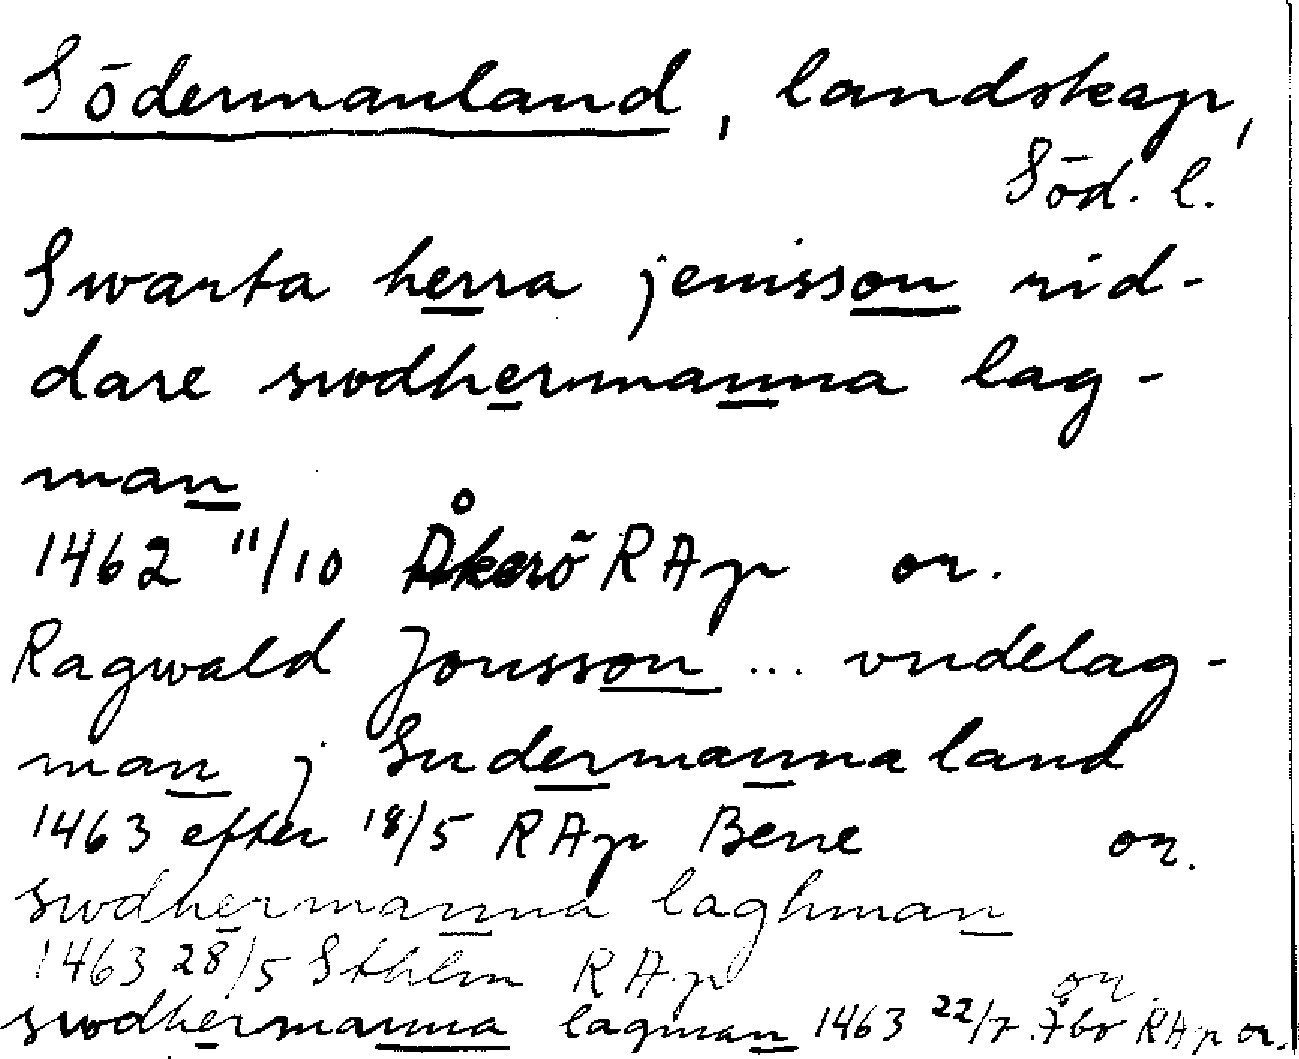 Södermanland, landskap,
Söd. l.
Swarta herra jenisson rid-
dare swdhermanna lag-
man
1462 11/10 Åkerö RAp or.
Ragwald Jonsson ... vndelag-
man j Sudermannaland
1463 efter 18/5 RAp Bene or.
swdhermanna laghman
1463 28/5 Sthlm RAp or.
swdhermanna lagman 1463 22/7 Åbo RAp or.